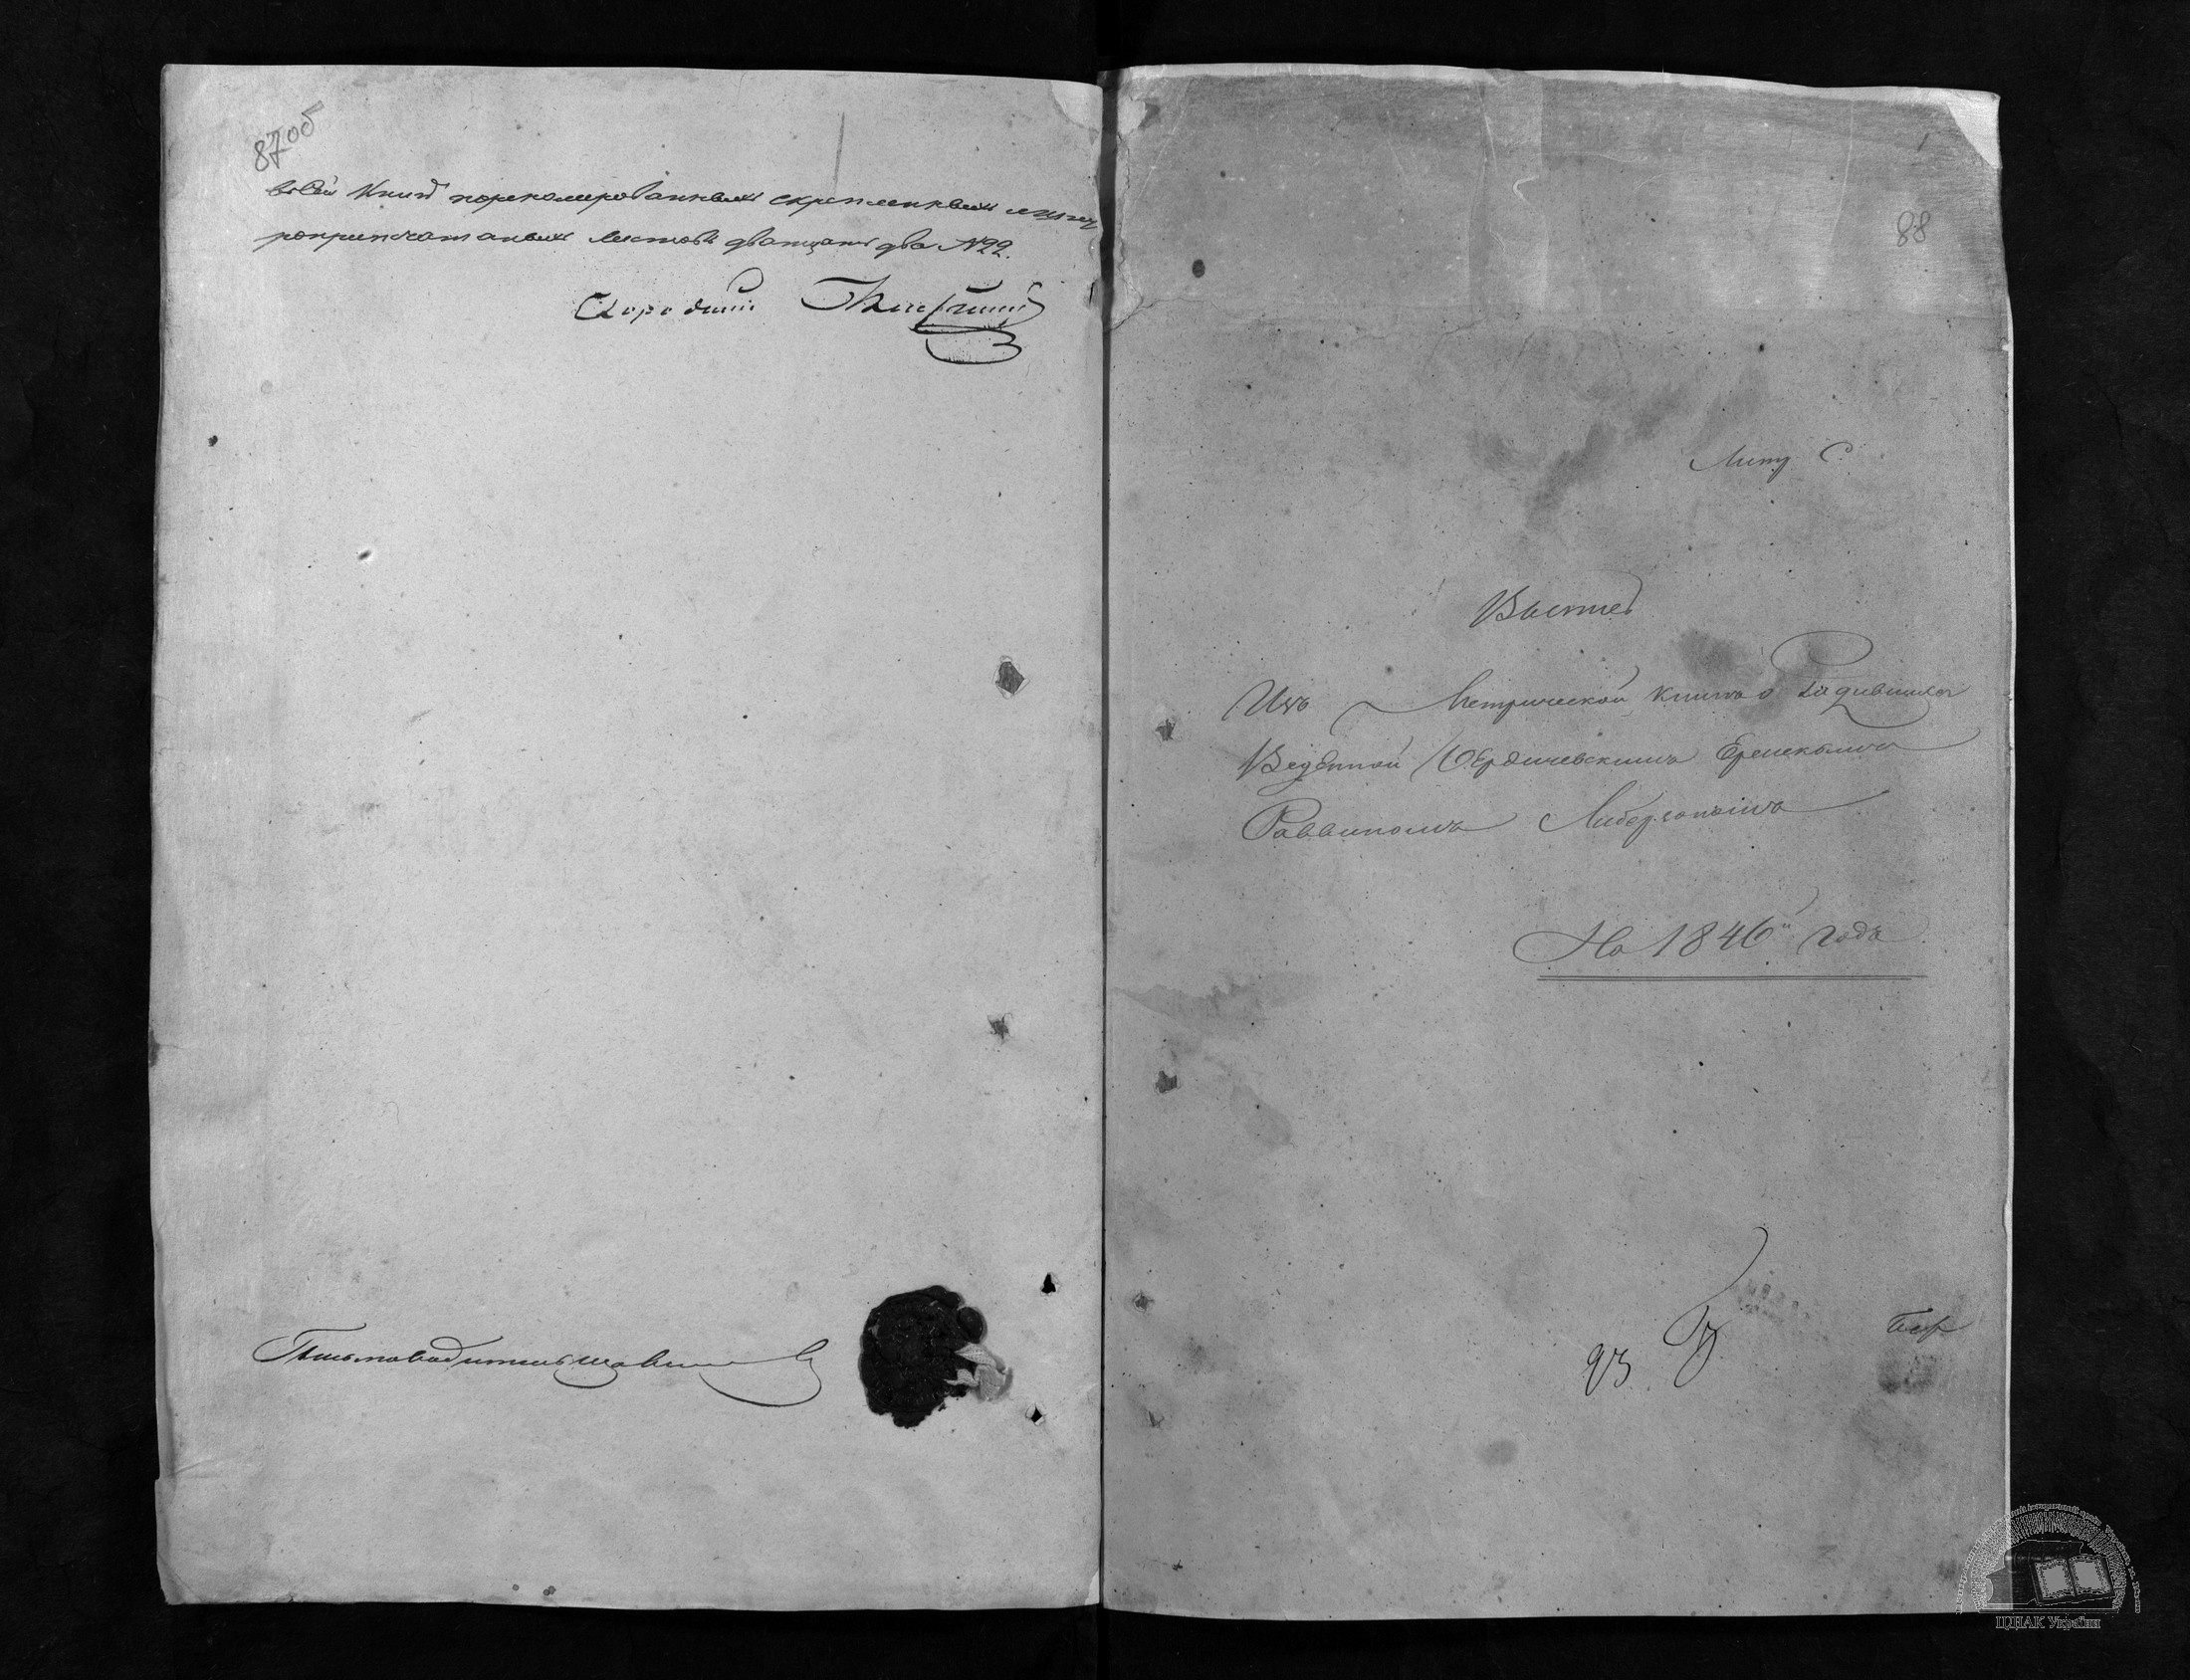 87об
въ сей Книге перенумерованныхъ скрепленныхъ и шну
роприпечатаныхъ листовъ дватцать два №22.
Письмоводитель
88
Лит. С.
Выпись
Изъ Метрической Книги о Родившихся
Веденной Бердичевскимъ Еврейскимъ
Раввиномъ Либерзономъ
На 1846й годъ
93
ЦДІАК України